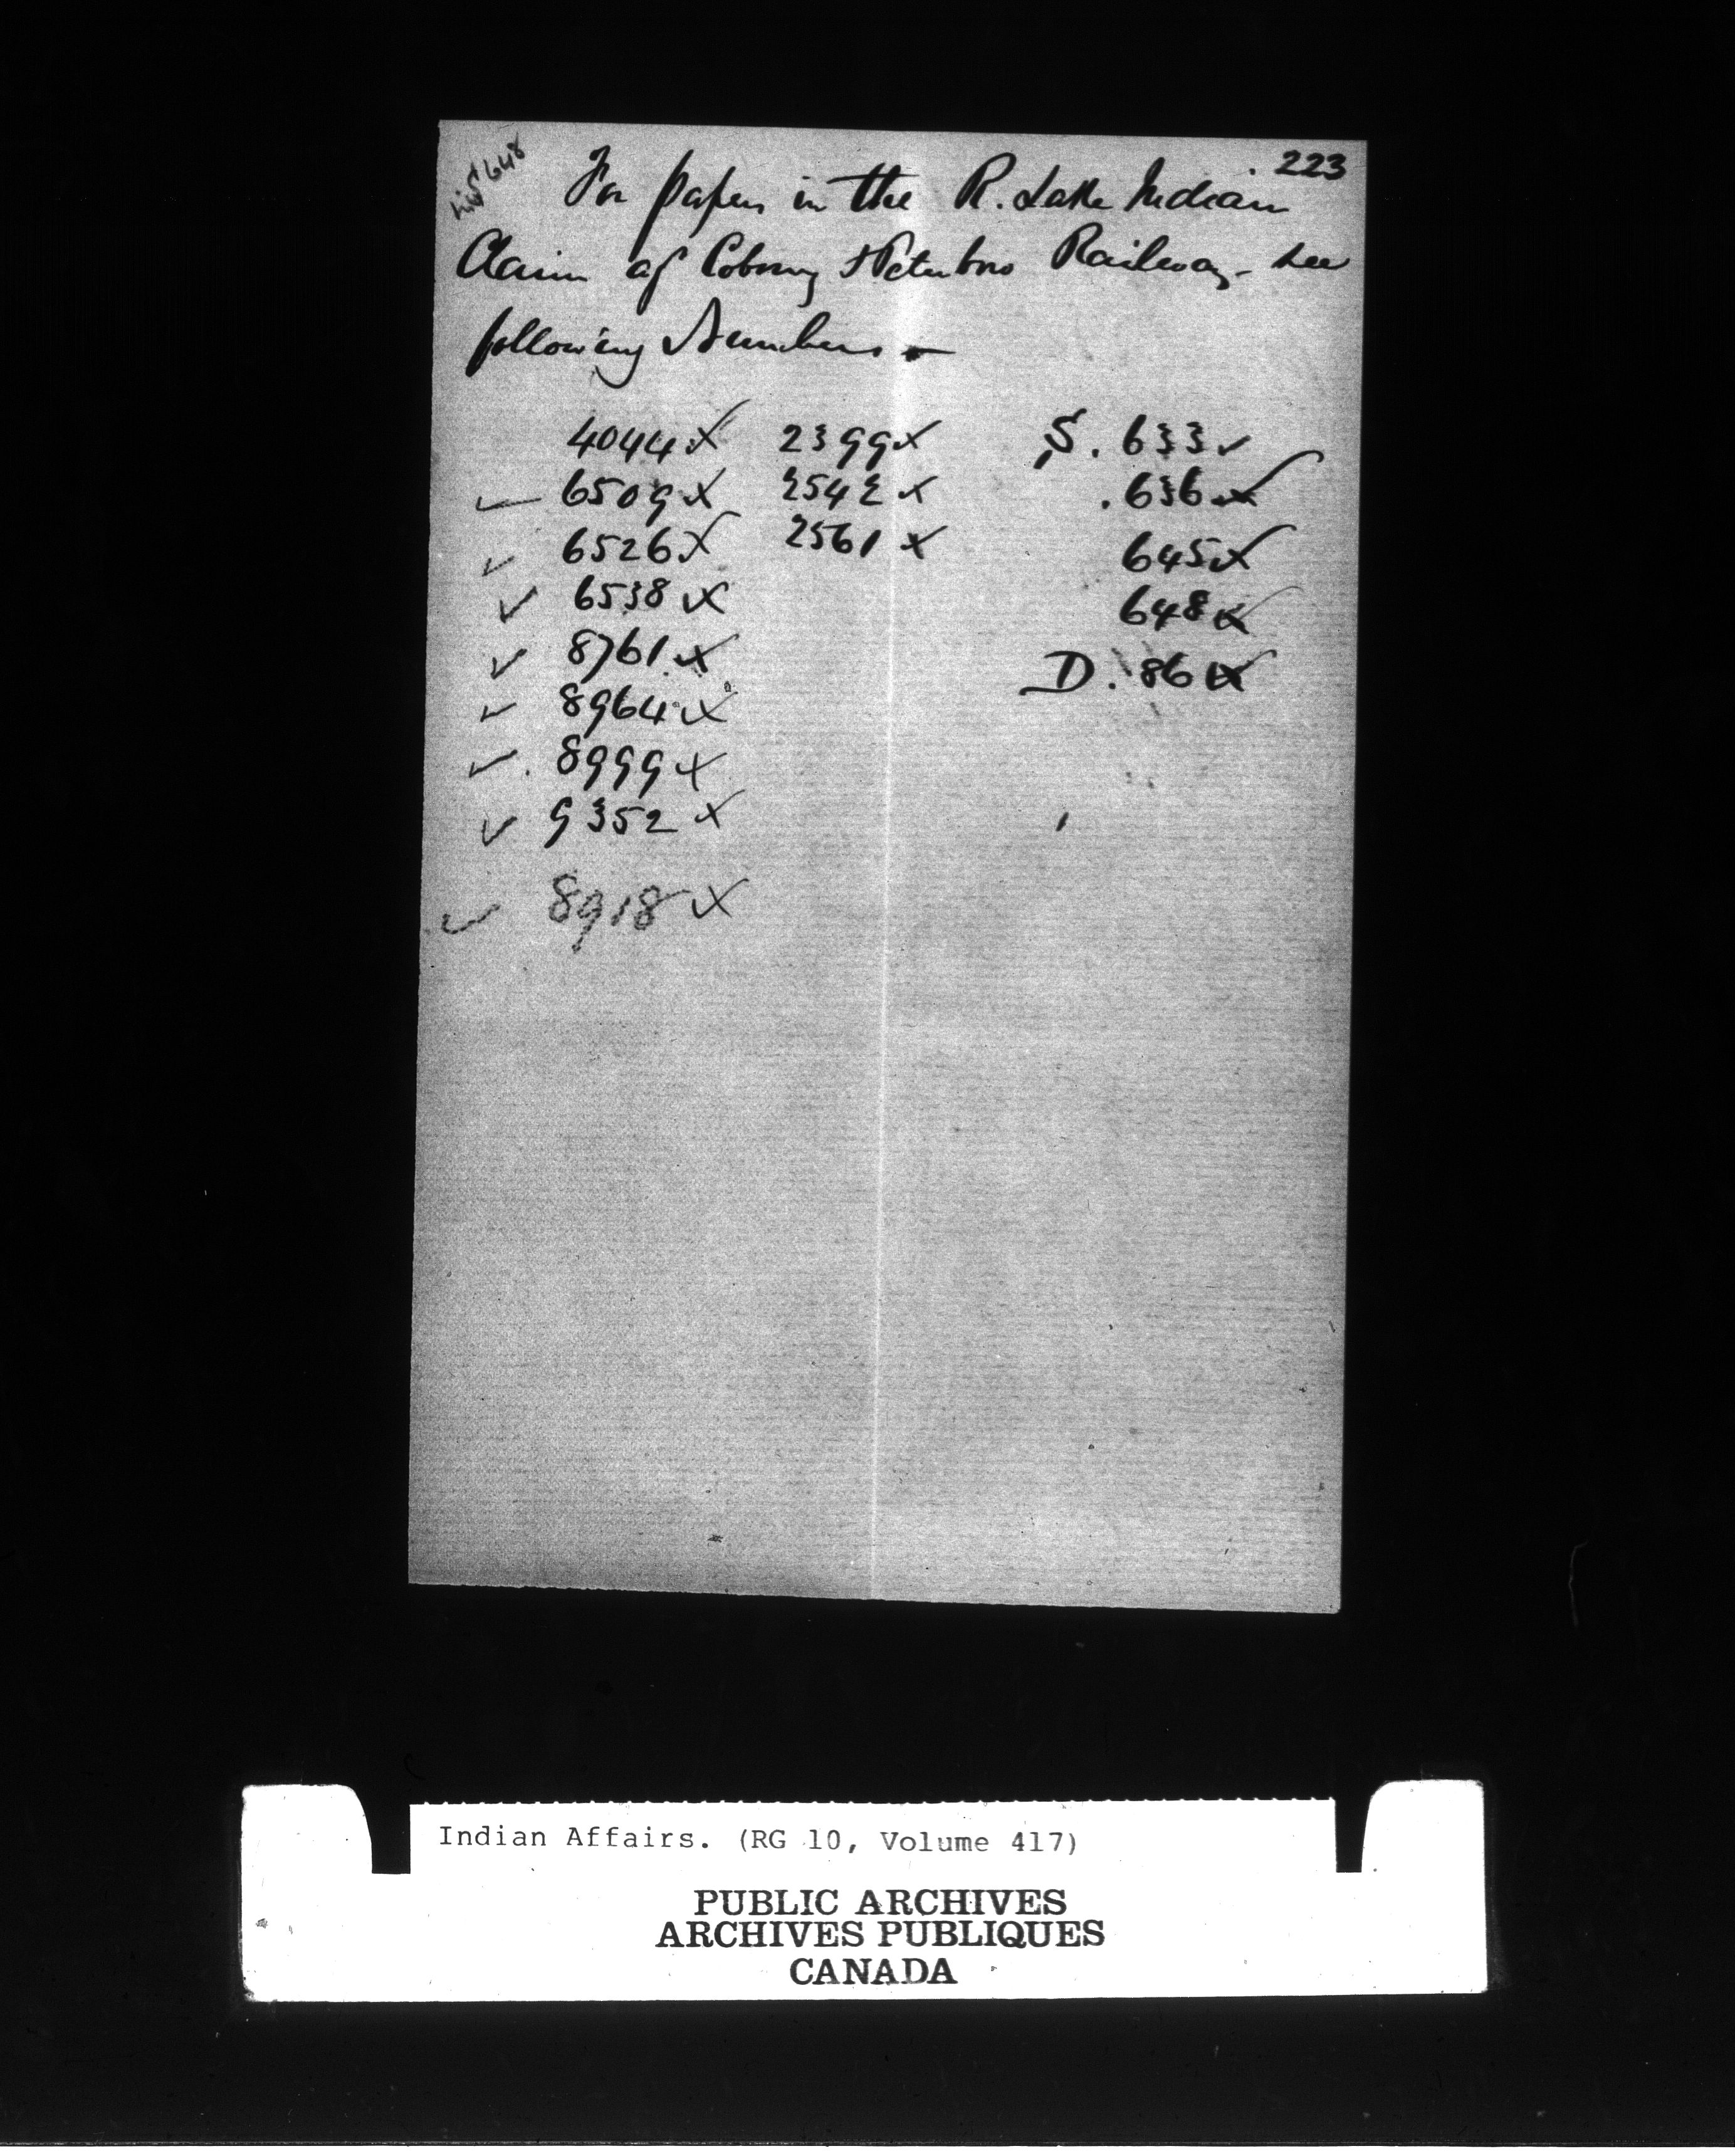 223
648
For papers in the R. Lake Indian
Claim of Cobourg & Peterboro Railway - see
following Numbers -
4044 x✓ 2399 x S. 633 ✓
✓ 6509 x 2542 x . 636 x✓
✓ 6526 x✓ 2561 x 645 x✓
✓ 6538 x 648 x
✓ 8761 x D. 86 x
✓ 8964 x
✓ 8999 x
✓ 9352 x
✓ 8918 x
Indian Affairs. (RG 10, Volume 417)
PUBLIC ARCHIVES
ARCHIVES PUBLIQUES
CANADA